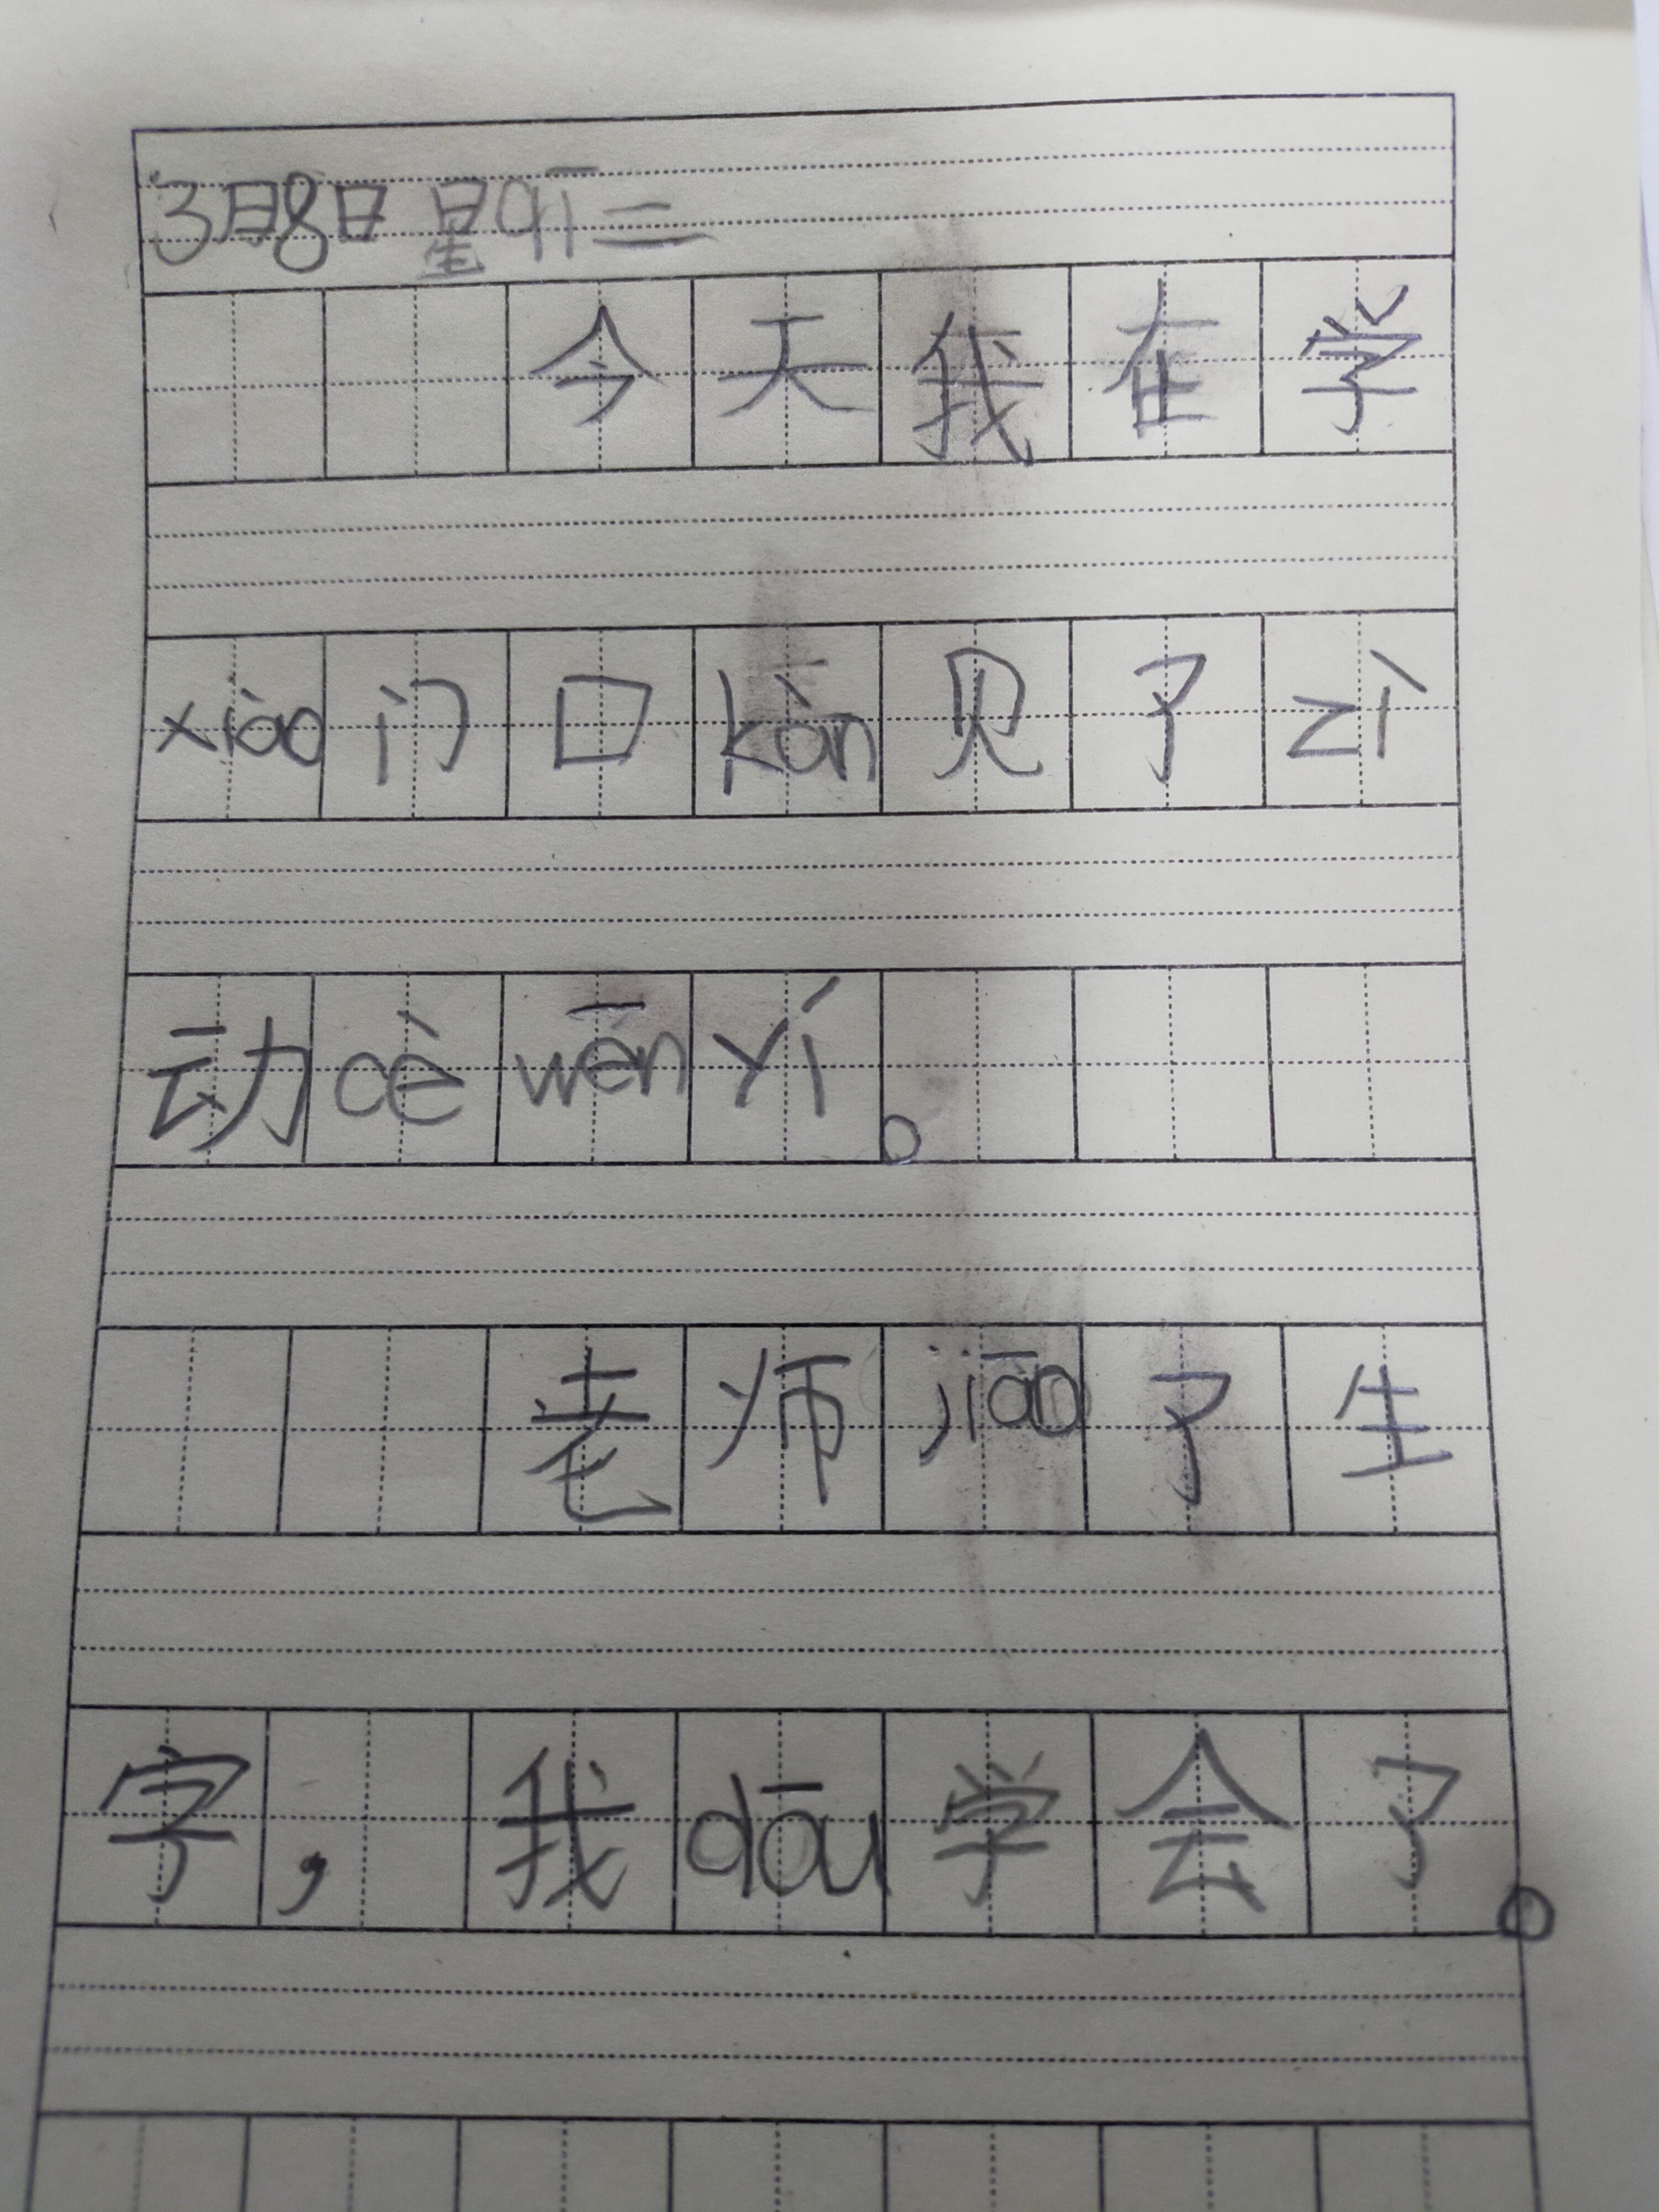 3月8日 星qī二
今天我在学
xiào门口kàn见了zì
动cè wēn yí。
老师jiāo了生
字，我dōu学会了。